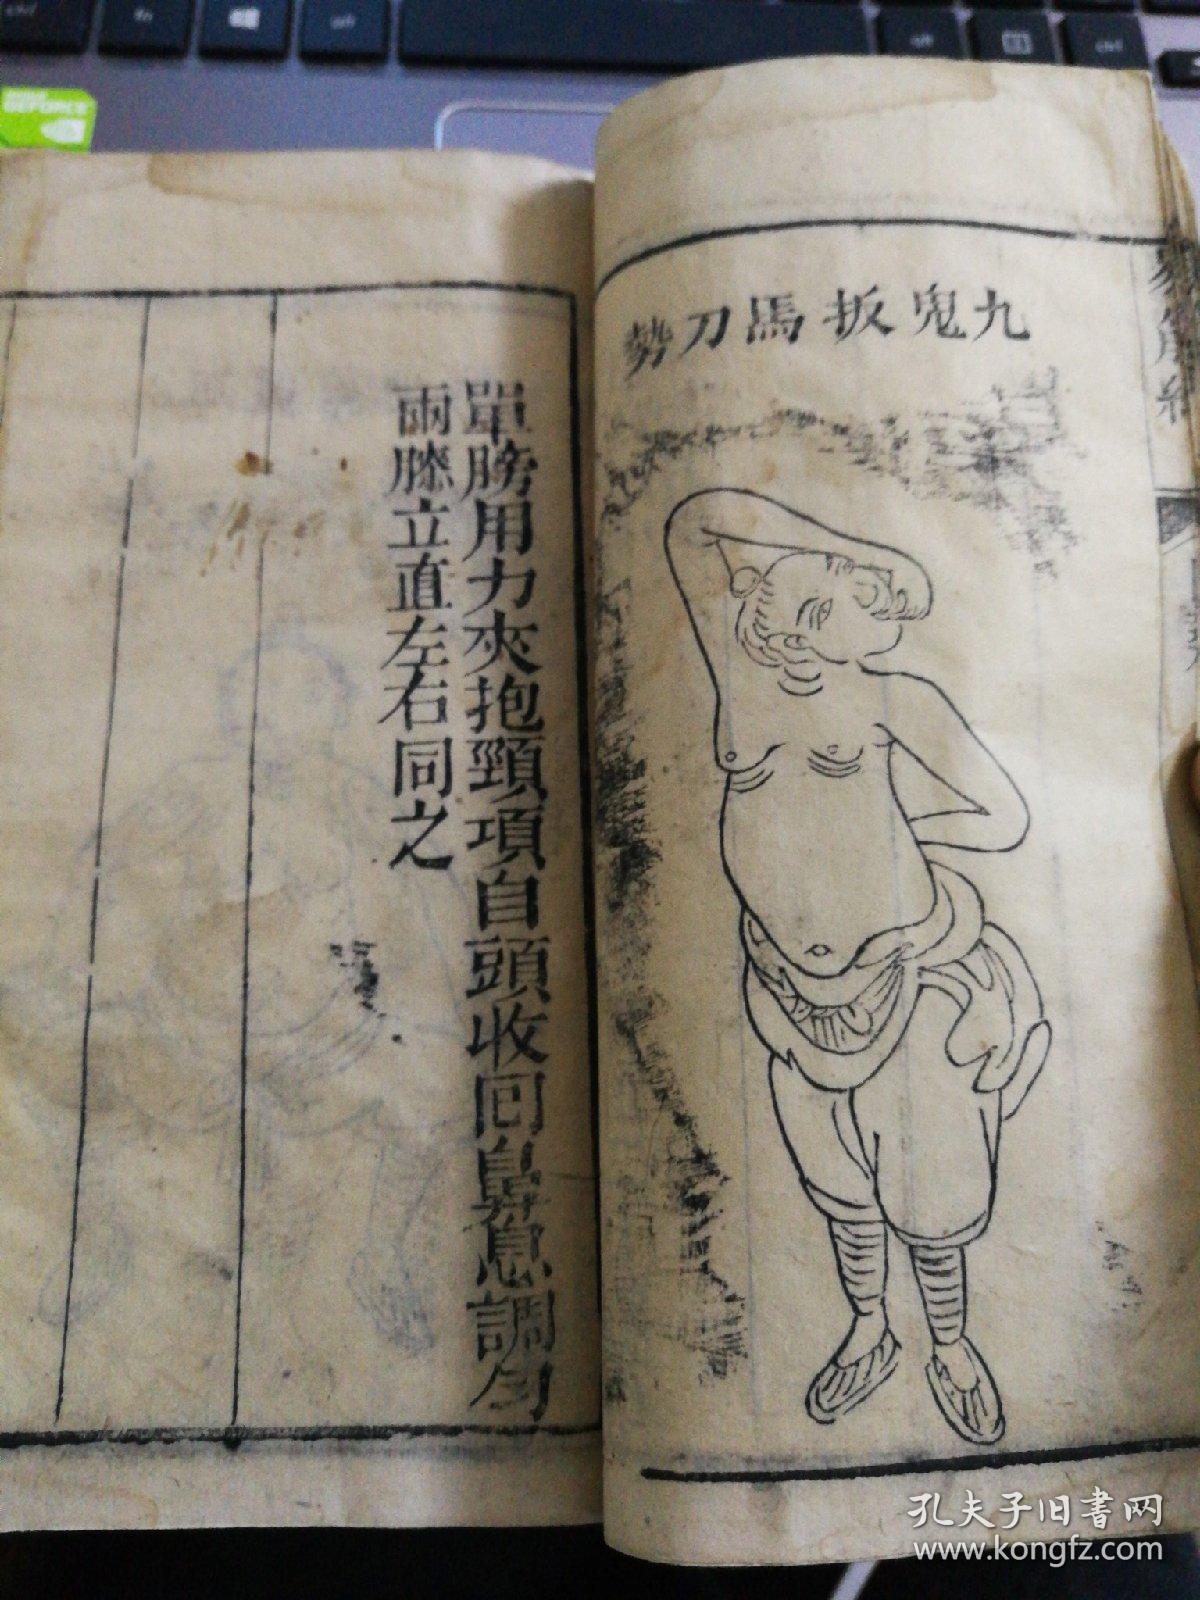 九鬼扳馬刀勢
單膀用力夾抱頸項自頭收囘鼻息調勻
兩膝立直左右同之
易筋經
GEFORCE
fn
alt
ctrl
孔夫子旧書网
www.kongfz.com